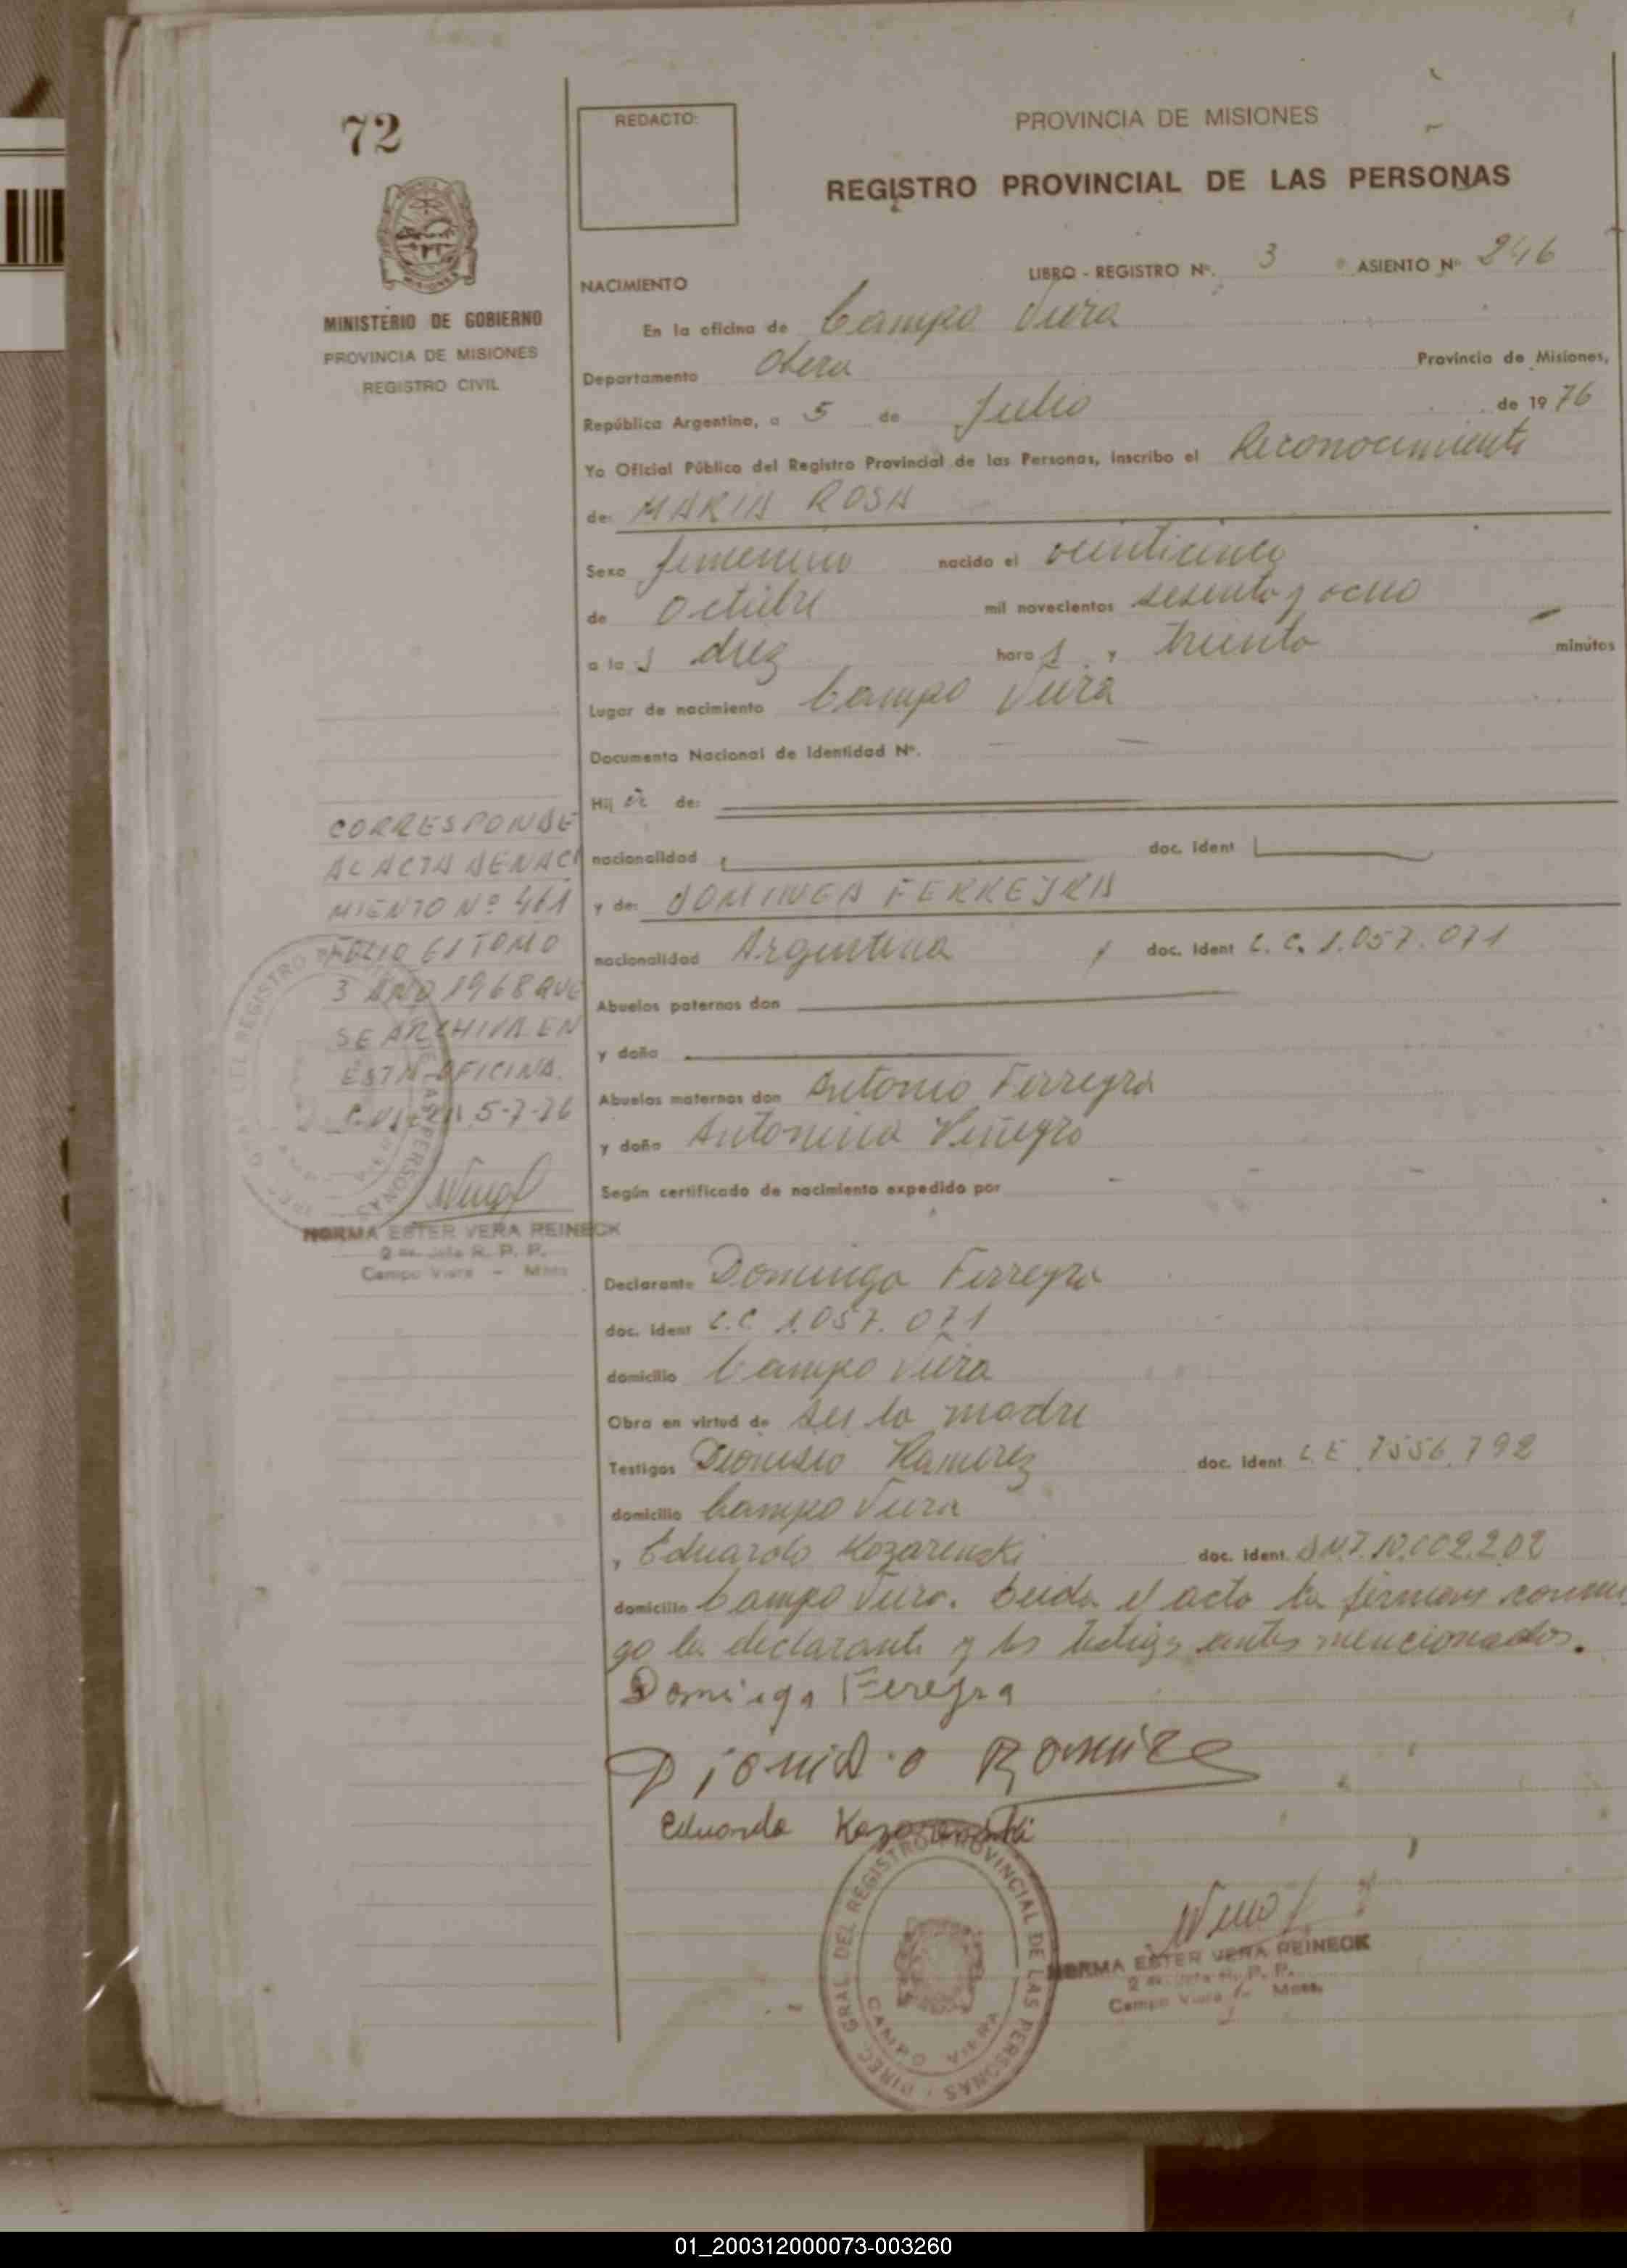 72
REDACTO:
PROVINCIA DE MISIONES
REGISTRO PROVINCIAL DE LAS PERSONAS
MINISTERIO DE GOBIERNO
PROVINCIA DE MISIONES
REGISTRO CIVIL
NACIMIENTO
LIBRO - REGISTRO Nº. 3 ASIENTO Nº 246
En la oficina de Campo Viera
Departamento Obera Provincia de Misiones,
República Argentina, a 5 de Julio de 1976
Yo Oficial Público del Registro Provincial de las Personas, inscribo el Reconocimiento
de: MARIA ROSA
Sexo femenino nacido el veinticinco
de Octubre mil novecientos sesenta y ocho
a las diez horas y treinta minutos
Lugar de nacimiento Campo Viera
Documento Nacional de Identidad Nº.
Hija de:
nacionalidad doc. ident
y de: DOMINGA FERREYRA
nacionalidad Argentina doc. ident L. C. 1.057.071
Abuelos paternos don
y doña
Abuelos maternos don Antonio Ferreyra
y doña Antonina
Según certificado de nacimiento expedido por
Declarante Dominga Ferreyra
doc. ident L.C 1.057.071
domicilio Campo Viera
Obra en virtud de ser la madre
Testigos Dionisio Ramirez doc. ident. L.E 7556.792
domicilio Campo Viera
y Eduardo Kozarenski doc. ident. D.N.I. 10.002.202
domicilio Campo Viera. Leida el acta la firman conmi
go la declarante y los testigos antes mencionados.
CORRESPONDE
AL ACTA DE NACI
MIENTO Nº 461
FOLIO 61 TOMO
3 AÑO 1968 QUE
SE ARCHIVA EN
ESTA OFICINA.
C. VIERA 5-7-76
NORMA ESTER VERA REINECK
R. P. P.
Campo Viera - Mnes
Dominga Fereyra
Dionisio Ramirez
Eduardo
DIREC. GRAL DEL REGISTRO PROVINCIAL DE LAS PERSONAS
CAMPO VIERA
NORMA ESTER VERA REINECK
R. P. P.
Campo Viera Mnes.
01_200312000073-003260